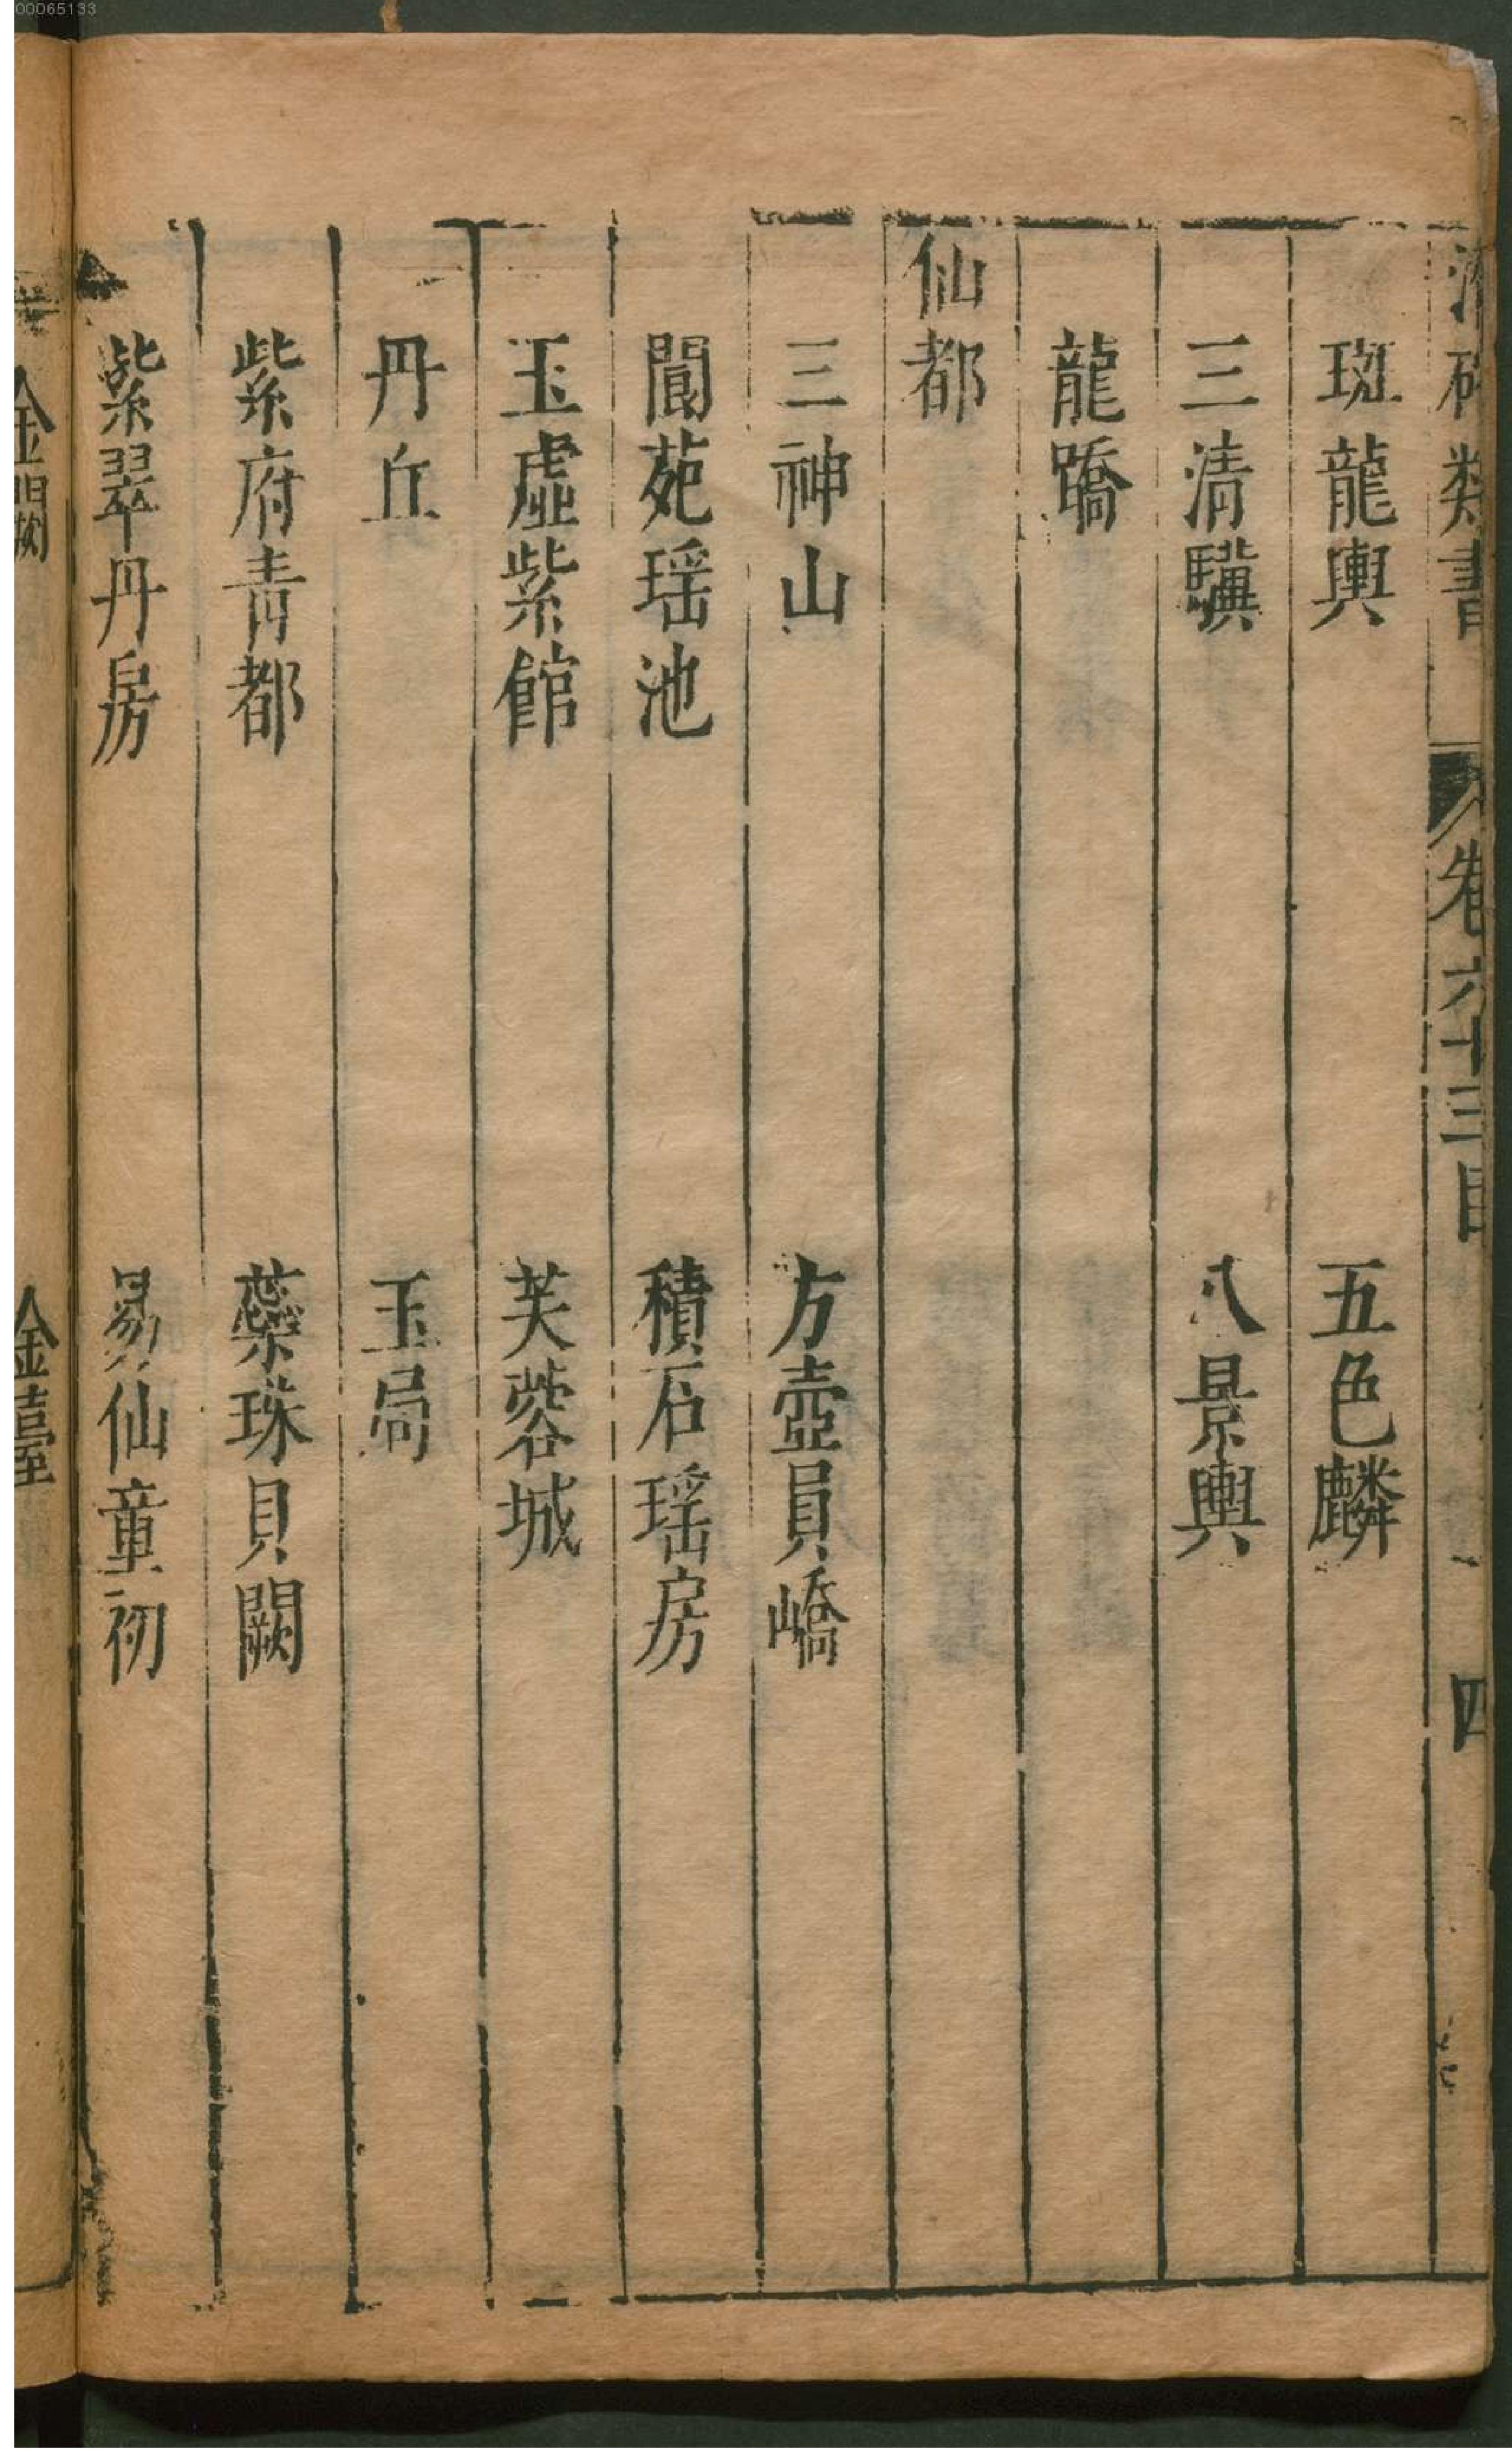 00065133
類書 卷六十三目 四
斑龍輿 五色麟
三清驥 八景輿
龍蹻
仙都
三神山 方壺員嶠
閬苑瑶池 積石瑶房
玉虛紫館 芙蓉城
丹丘 玉局
紫府青都 蘂珠貝闕
紫翠丹房 易仙童初
金闕 金臺